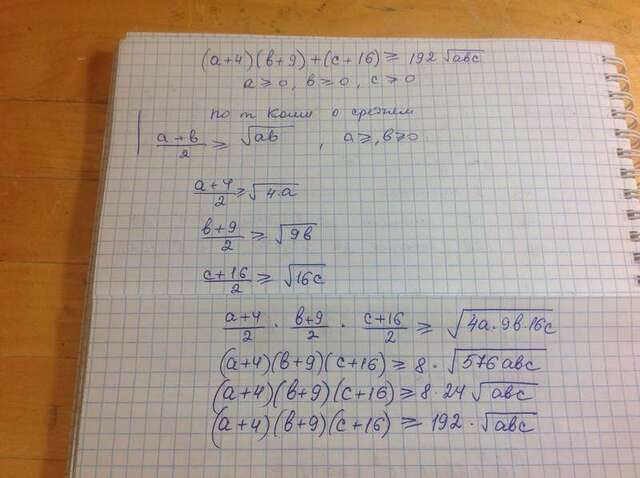 (a+4)(b+9)+(c+16)≥192√abc
a≥0, b≥0, c≥0
по т Коши о среднем
(a+b)/2 ≥ √ab, a≥, b≥0
(a+4)/2 ≥ √4·a
(b+9)/2 ≥ √9b
(c+16)/2 ≥ √16c
(a+4)/2 · (b+9)/2 · (c+16)/2 ≥ √4a·9b·16c
(a+4)(b+9)(c+16)≥8·√576abc
(a+4)(b+9)(c+16)≥8·24√abc
(a+4)(b+9)(c+16)≥192·√abc